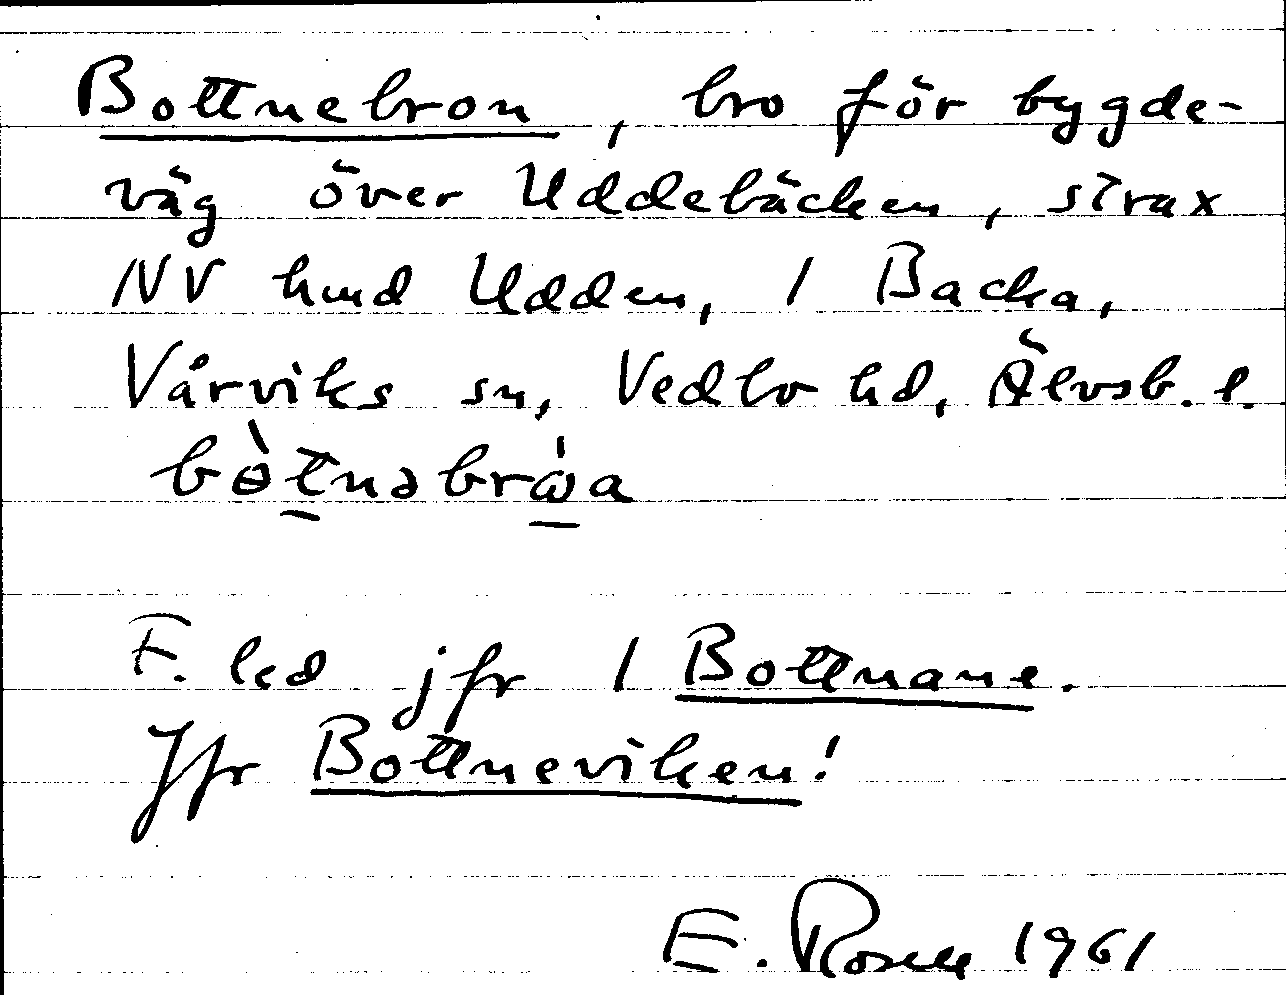 Bottnebron, bro för bygde-
väg över Uddebäcken, strax
NV hmd Udden, 1 Backa,
Vårviks sn, Vedbo hd, Älvsb. l.
bòt̠nəbrω̠̍a
F. led jfr 1 Bottnane.
Jfr Bottneviken!
E. Rosell 1961